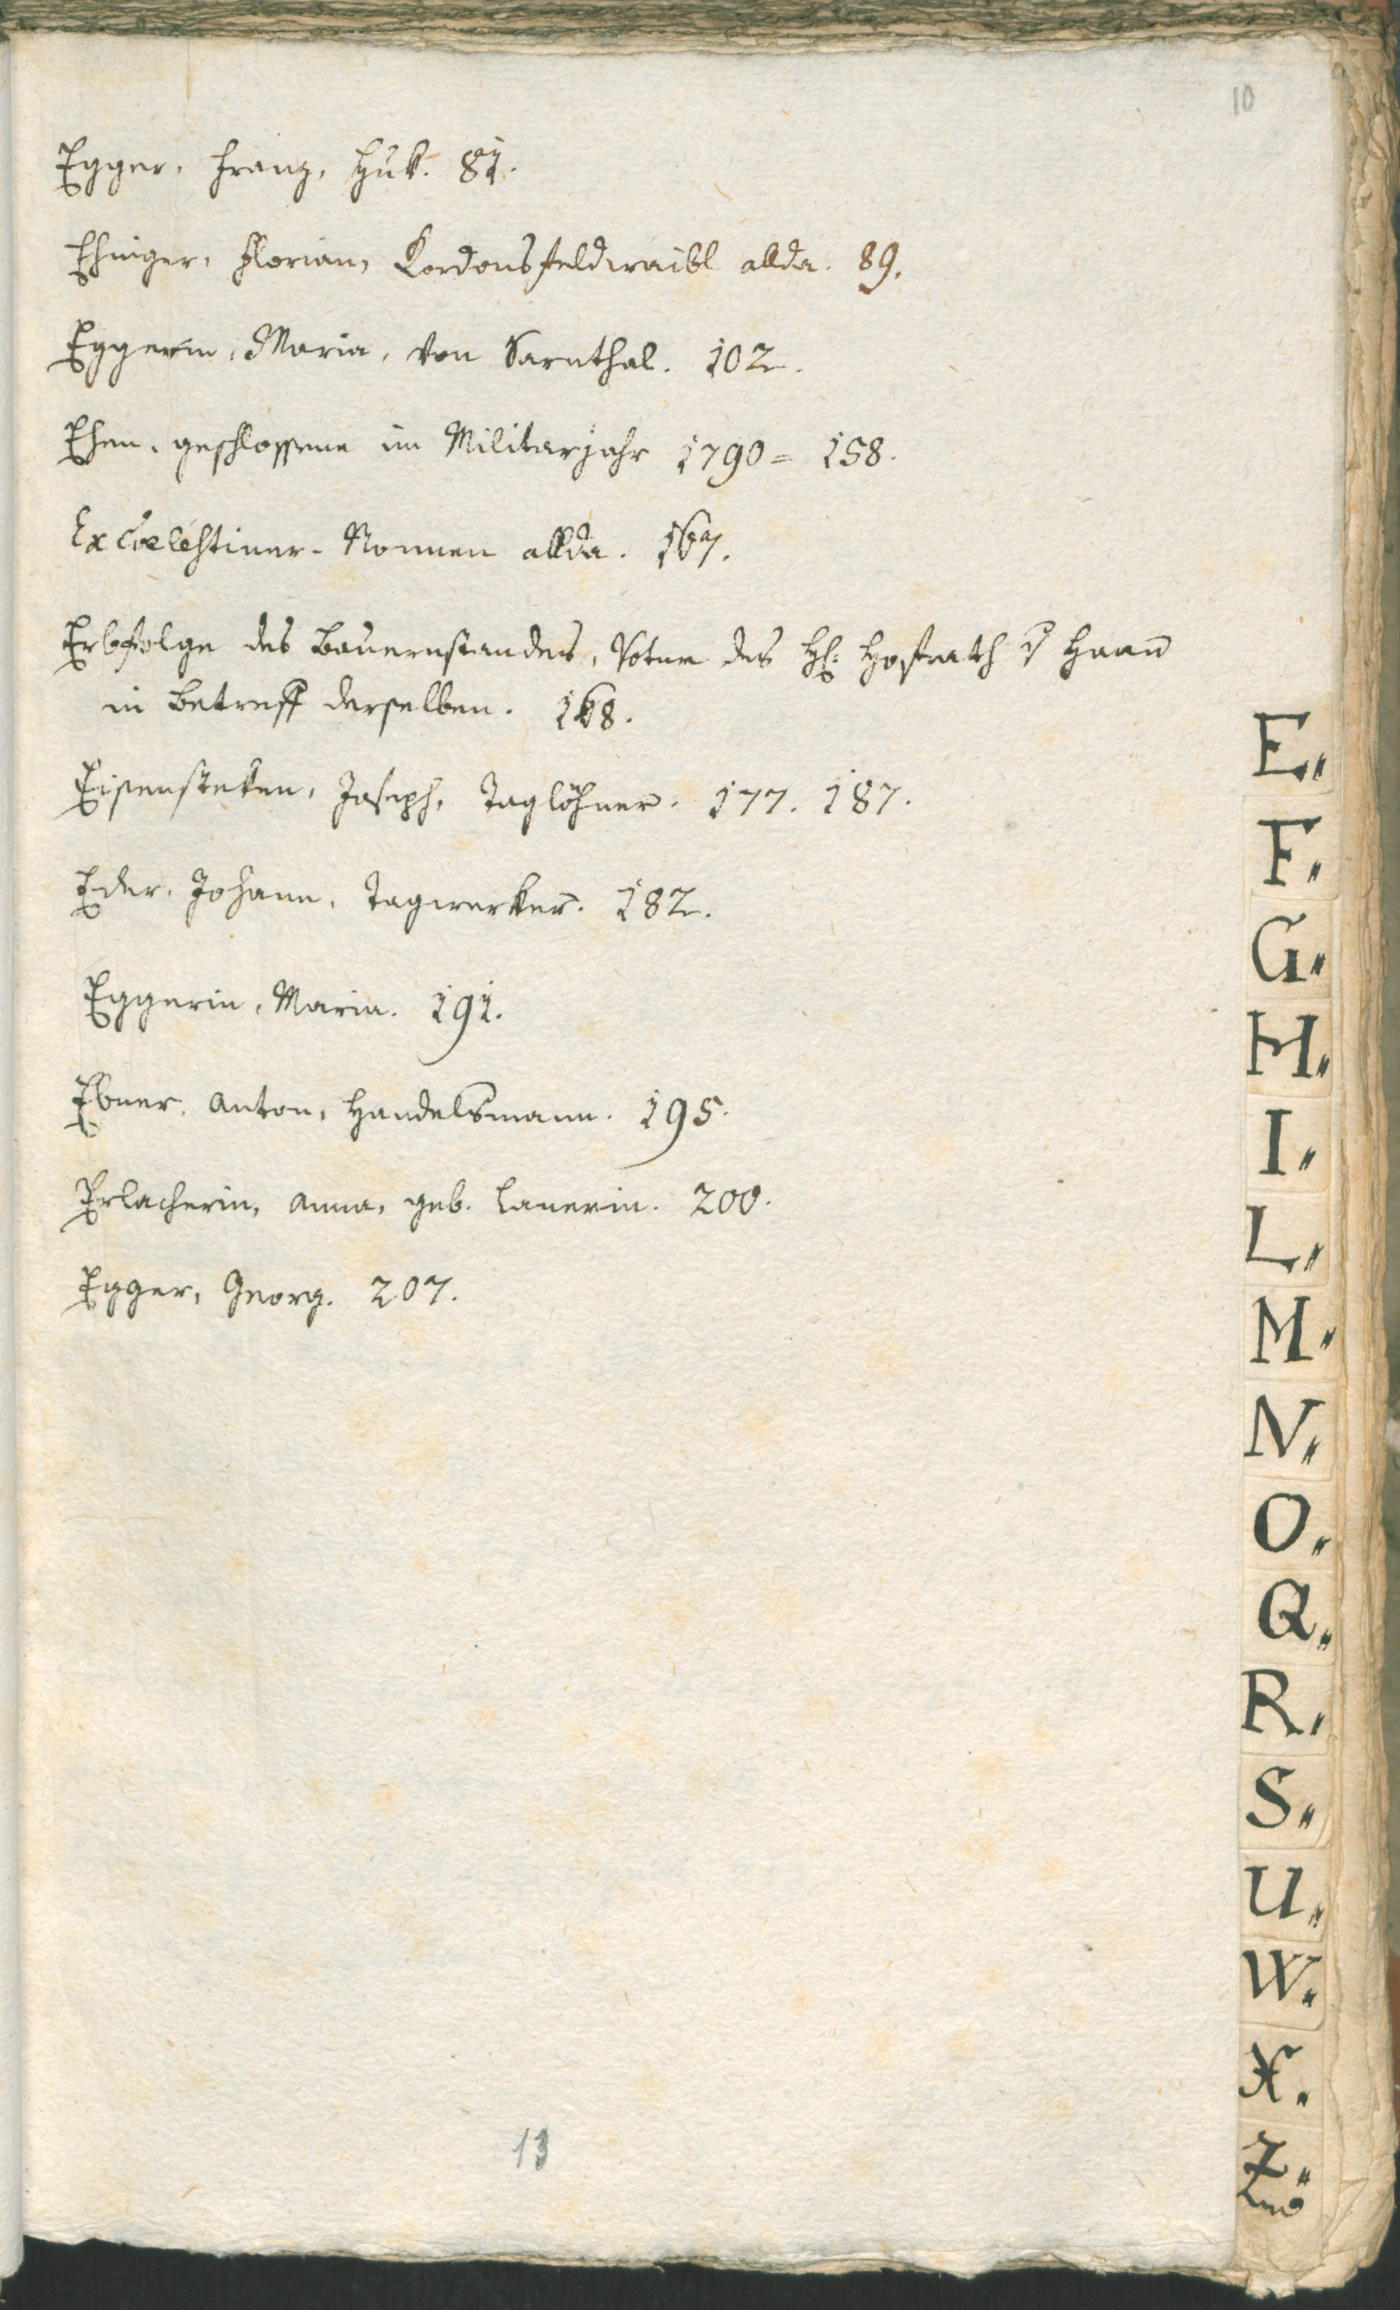 10
Egger, Franz, Huk. 81.
Ehniger, Florian, Cordonsfeldwaibl allda. 89.
Eggerin, Maria, von Sarnthal. 102.
Ehen, geschlossene im Militarjahr 1790 = 158.
Excoelestiner-Nonnen allda. 167.
Erbfolge des Bauernstandes, Votum des H: Hofrath v Haan
in Betreff derselben. 168.
Eisensteken, Joseph, Taglöhner. 177. 187.
Eder, Johann, Tagwerker. 182.
Eggerin, Maria. 191.
Ebner, Anton, Handelsmann. 195.
Erlacherin, Anna, geb. Lanerin. 200.
Egger, Georg. 207.
13
E.
F.
G.
H.
I.
L.
M.
N.
O.
Q.
R.
S.
U.
W.
X.
Z.